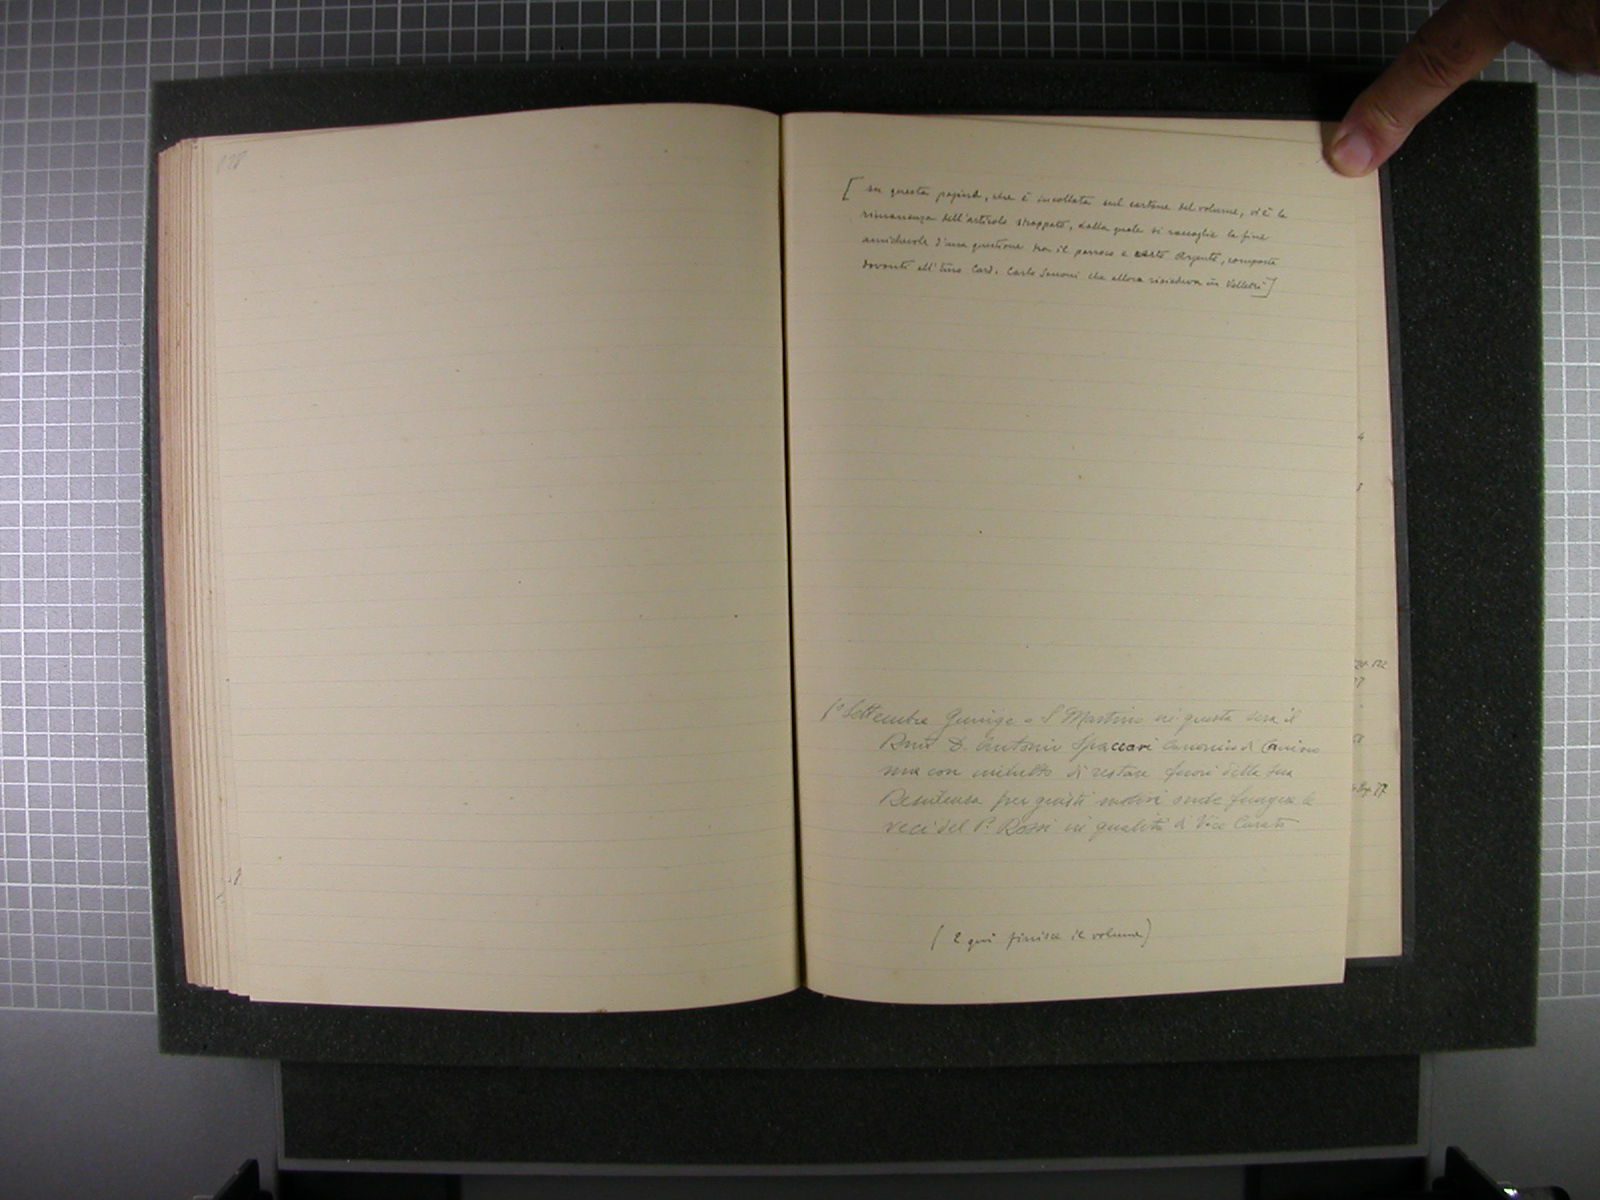 [su questa pagina, che è incollata sul cartone del volume, vi è la
rimanenza dell'articolo strappato, dalla quale si raccoglie la fine
amichevole d'una questione tra il parroco e certo Argenti, composta
davanti all' Card. Carlo che allora risiedeva in Velletri]
1° Settembre Giunge a S Martino in questa sera il
D. Antonio Spaccari Canonico di Canino
ma con indulto di restare fuori della sua
Residenza per giusti motivi onde fungere le
veci del P. Rossi in qualità di Vice Curato
(E qui finisce il volume)